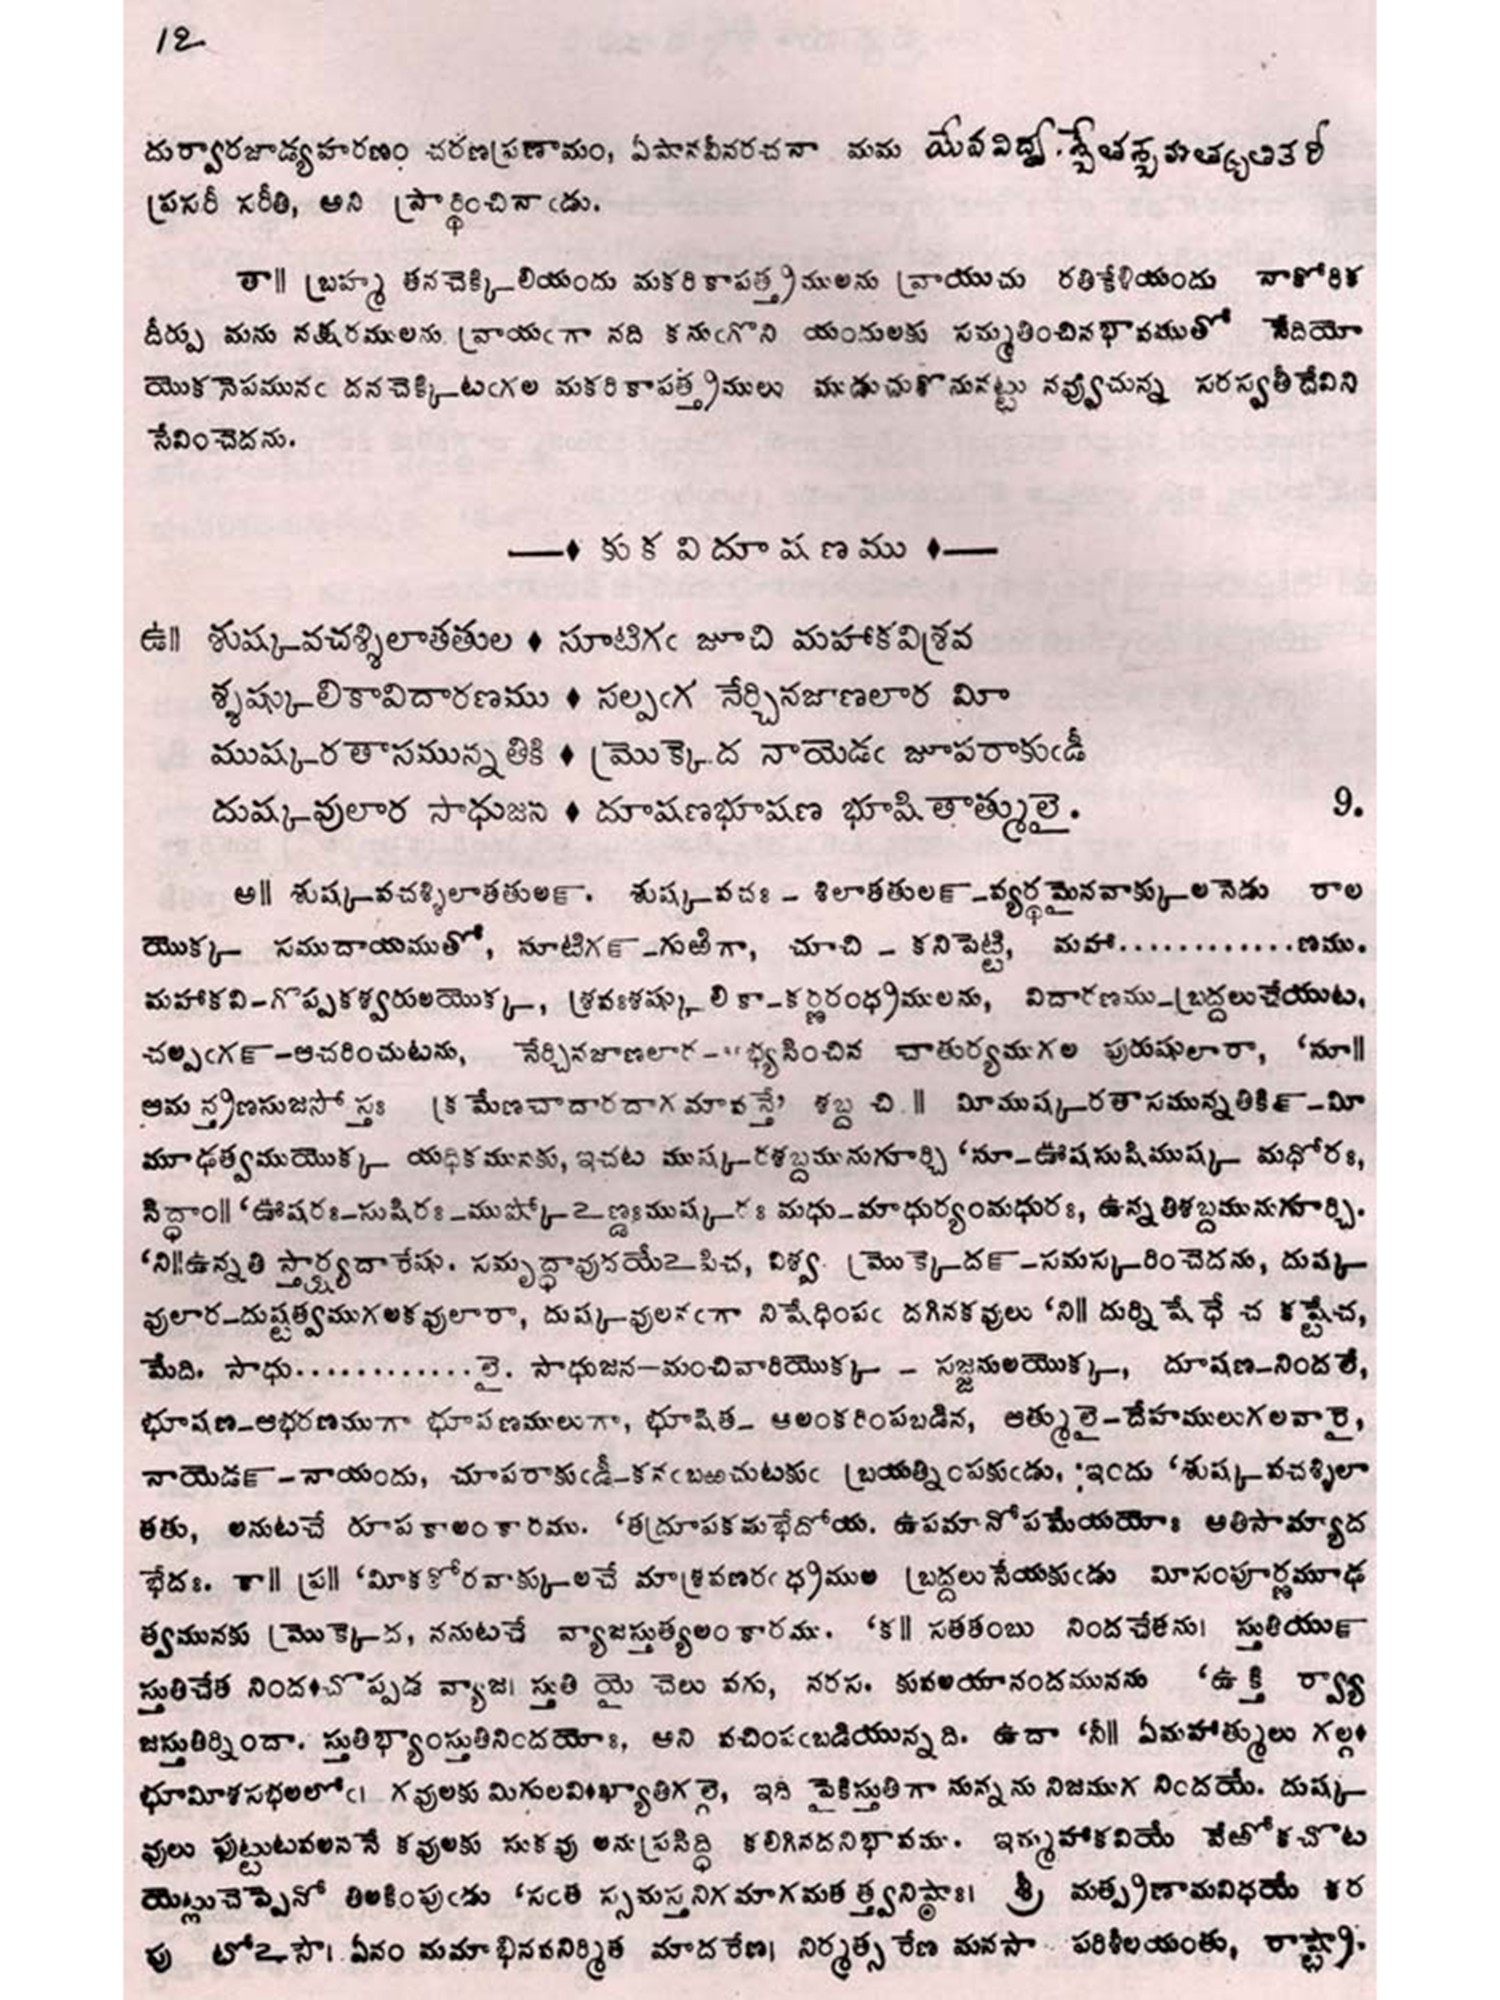 12
దుర్వారజాడ్యహరణం చరణప్రణామం, ఏషానవీనరచనా మమ
ప్రసరీ సరీతి, అని ప్రార్థించినాఁడు.
తా॥ బ్రహ్మ తనచెక్కిలియందు మకరికాపత్త్రములను వ్రాయుచు రతికేళియందు నాకోరిక
దీర్పు మను నక్షరములను వ్రాయఁగా నది కనుఁగొని యందులకు సమ్మతించినభావముతో నేదియో
యొకనెపమునఁ దనచెక్కిటఁగల మకరికాపత్త్రములు ముడుచుకొనునట్టు నవ్వుచున్న సరస్వతీదేవిని
సేవించెదను.
కుకవిదూషణము
ఉ॥ శుష్కవచశ్శిలాతతుల ♦ సూటిగఁ జూచి మహాకవిశ్రవ
శ్శష్కులికావిదారణము ♦ సల్పఁగ నేర్చినజాణలార మీ
ముష్కరతాసమున్నతికి ♦ మ్రొక్కెద నాయెడఁ జూపరాకుఁడీ
దుష్కవులార సాధుజన ♦ దూషణభూషణ భూషితాత్ములై. 9.
అ॥ శుష్కవచశ్శిలాతతులన్. శుష్కవచః - శిలాతతులన్-వ్యర్థమైనవాక్కులనెడు రాల
యొక్క సముదాయముతో, సూటిగన్-గుఱిగా, చూచి - కనిపెట్టి, మహా............ణము.
మహాకవి-గొప్పకవీశ్వరులయొక్క, శ్రవఃశష్కులికా-కర్ణరంధ్రములను, విదారణము-బ్రద్దలుచేయుట,
చల్పఁగన్-ఆచరించుటను, నేర్చినజాణలార- చాతుర్యముగల పురుషులారా, ‘నూ॥
క్రమేణచాదారదాగమావస్తే’ శబ్ద చి ॥ మీముష్కరతాసమున్నతికిన్-మీ
మూఢత్వముయొక్క యధికమునకు, ఇచట ముష్కరశబ్దమునుగూర్చి ‘నూ-ఊషసుషిముష్క మధోరః,
సిద్ధాం॥ ‘ఊషరః-సుషిరః-ముష్కోఽణ్డఃముష్కరః మధు-మాధుర్యంమధురః, ఉన్నతిశబ్దమునుగూర్చి.
‘ని॥ఉన్నతి స్తార్క్ష్యదారేషు. సమృద్ధావుదయేఽపిచ, విశ్వ. మ్రొక్కెదన్-నమస్కరించెదను, దుష్క
వులార-దుష్టత్వముగలకవులారా, దుష్కవులనఁగా నిషేధింపఁ దగినకవులు ‘ని॥ దుర్నిషేధే చ కష్టేచ,
మేది. సాధు............లై. సాధుజన-మంచివారియొక్క - సజ్జనులయొక్క, దూషణ-నిందలే,
భూషణ-ఆభరణముగా భూషణములుగా, భూషిత- అలంకరింపబడిన, ఆత్ములై-దేహములుగలవారై,
నాయెడన్-నాయందు, చూపరాకుఁడీ-కనఁబఱచుటకుఁ బ్రయత్నింపకుఁడు, ఇందు ‘శుష్కవచశ్శిలా
తతు, అనుటచే రూపకాలంకారము. ‘తద్రూపకమభేదోయ. ఉపమానోపమేయయోః అతిసామ్యాద
భేదః. కా॥ ప్ర॥ ‘మీకఠోరవాక్కులచే మాశ్రవణరంధ్రముల బ్రద్దలుసేయకుఁడు మీసంపూర్ణమూఢ
త్వమునకు మ్రొక్కెద, ననుటచే వ్యాజస్తుత్యలంకారము. ‘క॥ సతతంబు నిందచేతను। స్తుతియున్
స్తుతిచేత నింద♦చొప్పడ వ్యాజ। స్తుతి యై చెలు వగు, నరస. కువలయానందమునను ‘ఉక్తి ర్వ్యా
జస్తుతిర్నిందా. స్తుతిభ్యాంస్తుతినిందయోః, అని వచింపఁబడియున్నది. ఉదా ‘సీ॥ ఏమహాత్ములు గల్గ♦
భూమీశసభలలోఁ। గవులకు మిగులవి♦ఖ్యాతిగల్గె, ఇది పైకిస్తుతిగా నున్నను నిజముగ నిందయే. దుష్క
వులు పుట్టుటవలననే కవులకు సుకవు లనుప్రసిద్ధి కలిగినదనిభావము. ఇమ్మహాకవియే వేఱొకచొట
యెట్లుచెప్పెనో తిలకింపుఁడు ‘సంత స్సమస్తనిగమాగమతత్త్వనిష్ఠాః। శ్రీ మత్ప్రణామవిధయే కర
పు టోఽసౌ। ఏనం మమాభినవనిర్మిత మాదరేణ। నిర్మత్సరేణ మనసా పరిశీలయంతు,